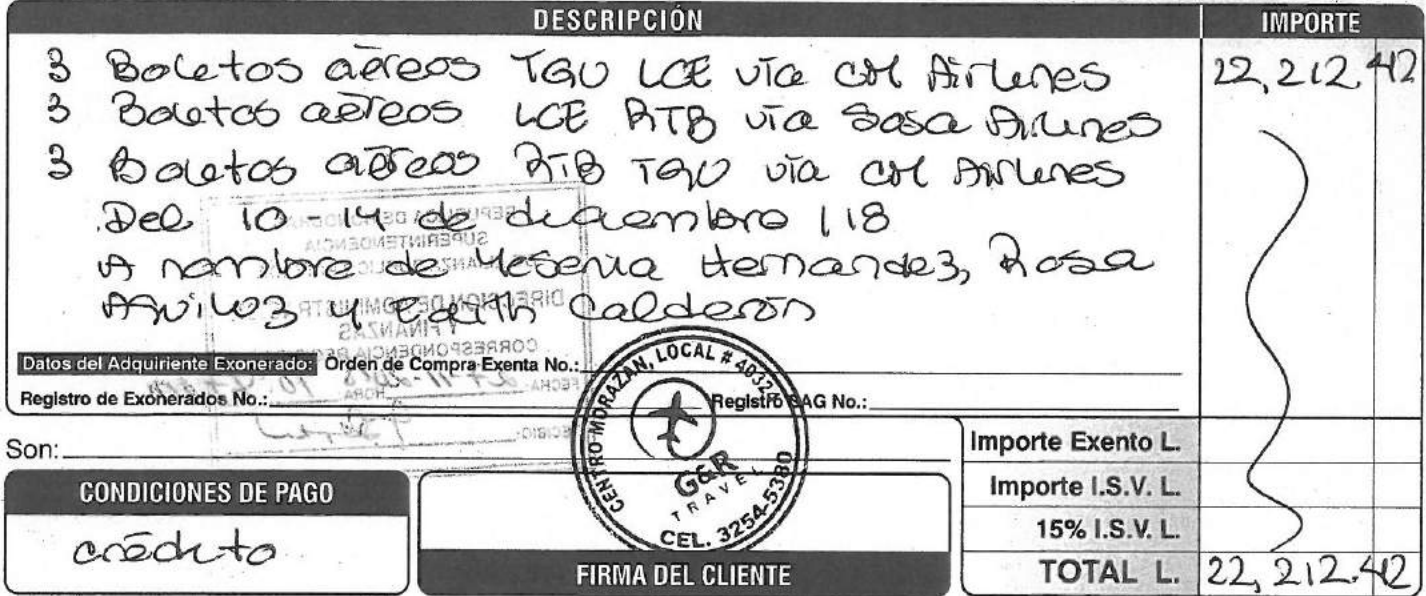 DESCRIPCIÓN IMPORTE
3 Boletos aéreos TGU LCE vía CM Airlines 22,212.42
3 Boletos aéreos LCE RTB vía Sosa Airlines
3 Boletos aéreos RTB TGU vía CM Airlines
Del 10-14 de diciembre 118
A nombre de Yesenia Hernandez, Rosa
y Edith Calderón
Datos del Adquiriente Exonerado: Orden de Compra Exenta No.:
Registro de Exonerados No.: Registro SAG No.:
CENTRO MORAZAN, LOCAL # 40327
G&R
TRAVEL
CEL. 3254-5380
Son:
Importe Exento L.
Importe I.S.V. L.
15% I.S.V. L.
TOTAL L. 22,212.42
CONDICIONES DE PAGO
crédito
FIRMA DEL CLIENTE